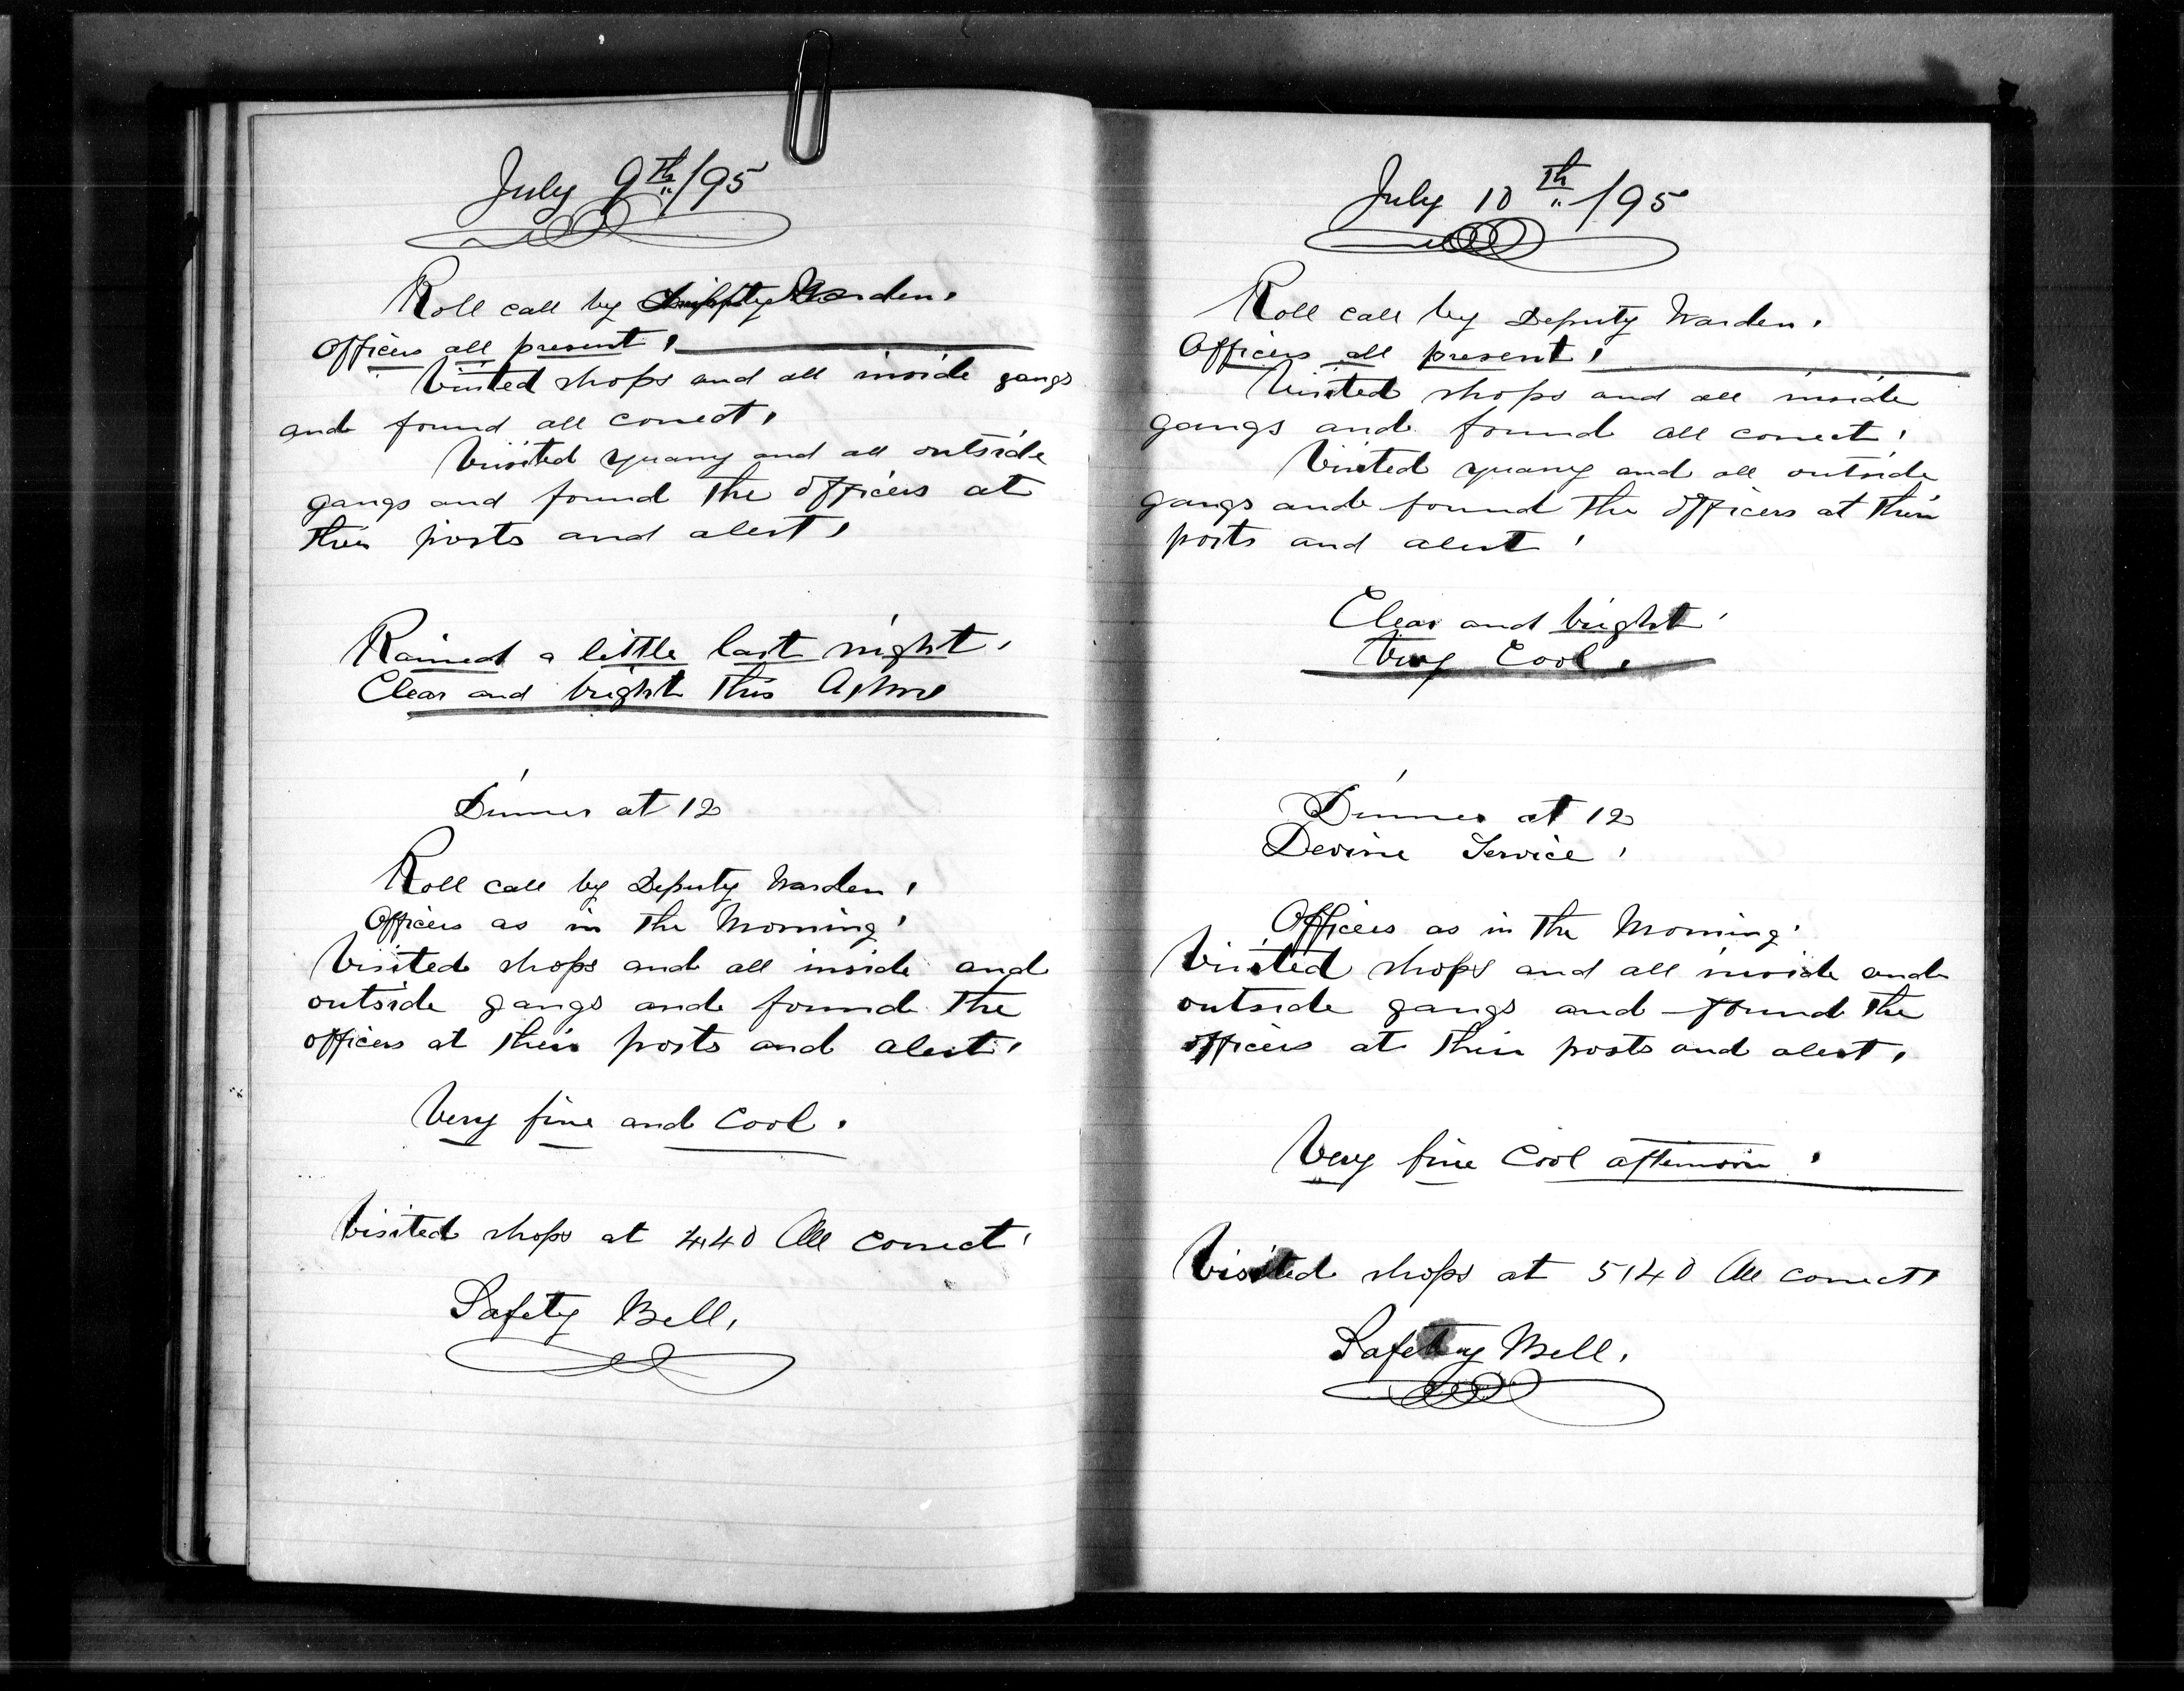 July 9th/95
Roll call by Deputy Warden.
Officers all present.
Visited shops and all inside gangs
and found all correct.
Visited quarry and all outside
gangs and found the officers at
their posts and alert.
Rained a little last night.
Clear and bright this A,M
Dinner at 12
Roll call by Deputy Warden.
Officers as in the Morning.
Visited shops and all inside and
outside gangs and found the
officers at their posts and alert.
Very fine and Cool.
Visited shops at 4,40 All correct.
Safety Bell.
July 10th/95
Roll call by Deputy Warden.
Officers all present.
Visited shops and all inside
gangs and found all correct.
Visited quarry and all outside
gangs and found the officers at their
posts and alert.
Clear and bright.
Very Cool.
Dinner at 12
Devine Service.
Officers as in the Morning.
Visited shops and all inside and
outside gangs and found the
officers at their posts and alert.
Very fine Cool afternoon.
Visited shops at 5,40 All correct.
Safety Bell.